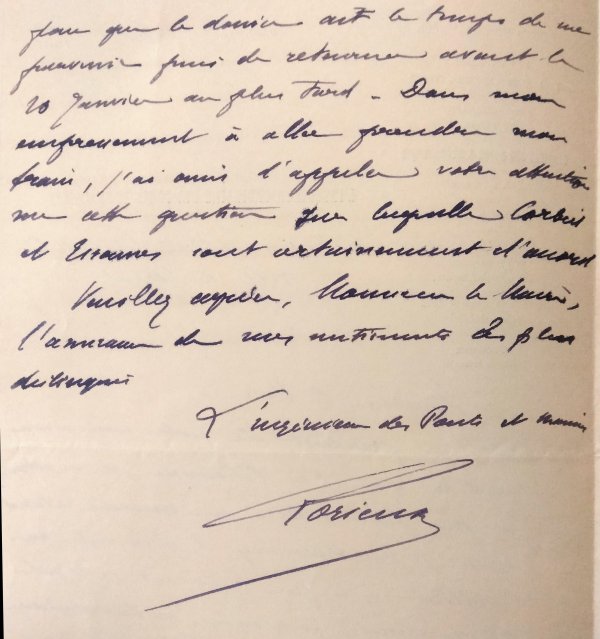 pour que le dossier ait le temps de me
parvenir puis de retourner avant le
20 Janvier au plus tard. Dans mon
empressement à aller prendre mon
train, j'ai omis d'appeler votre attention
sur cette question sur laquelle Corbeil
et Essonnes sont certainement d'accord
Veuillez agréer, Monsieur le Maire,
l'assurance de mes sentiments les plus
distingués
L'ingénieur des Ponts et